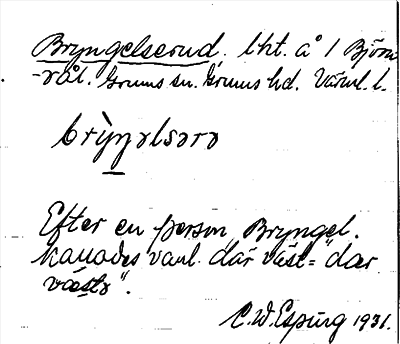 Bryngelserud. lht. å 1 Björn-
-vål. Grums sn. Grums hd. Värml. l.
brỳŋəlsərə
Efter en person Bryngel.
kallades vanl. "där väst=" "dær
væstə".
C.W. Espling 1931.